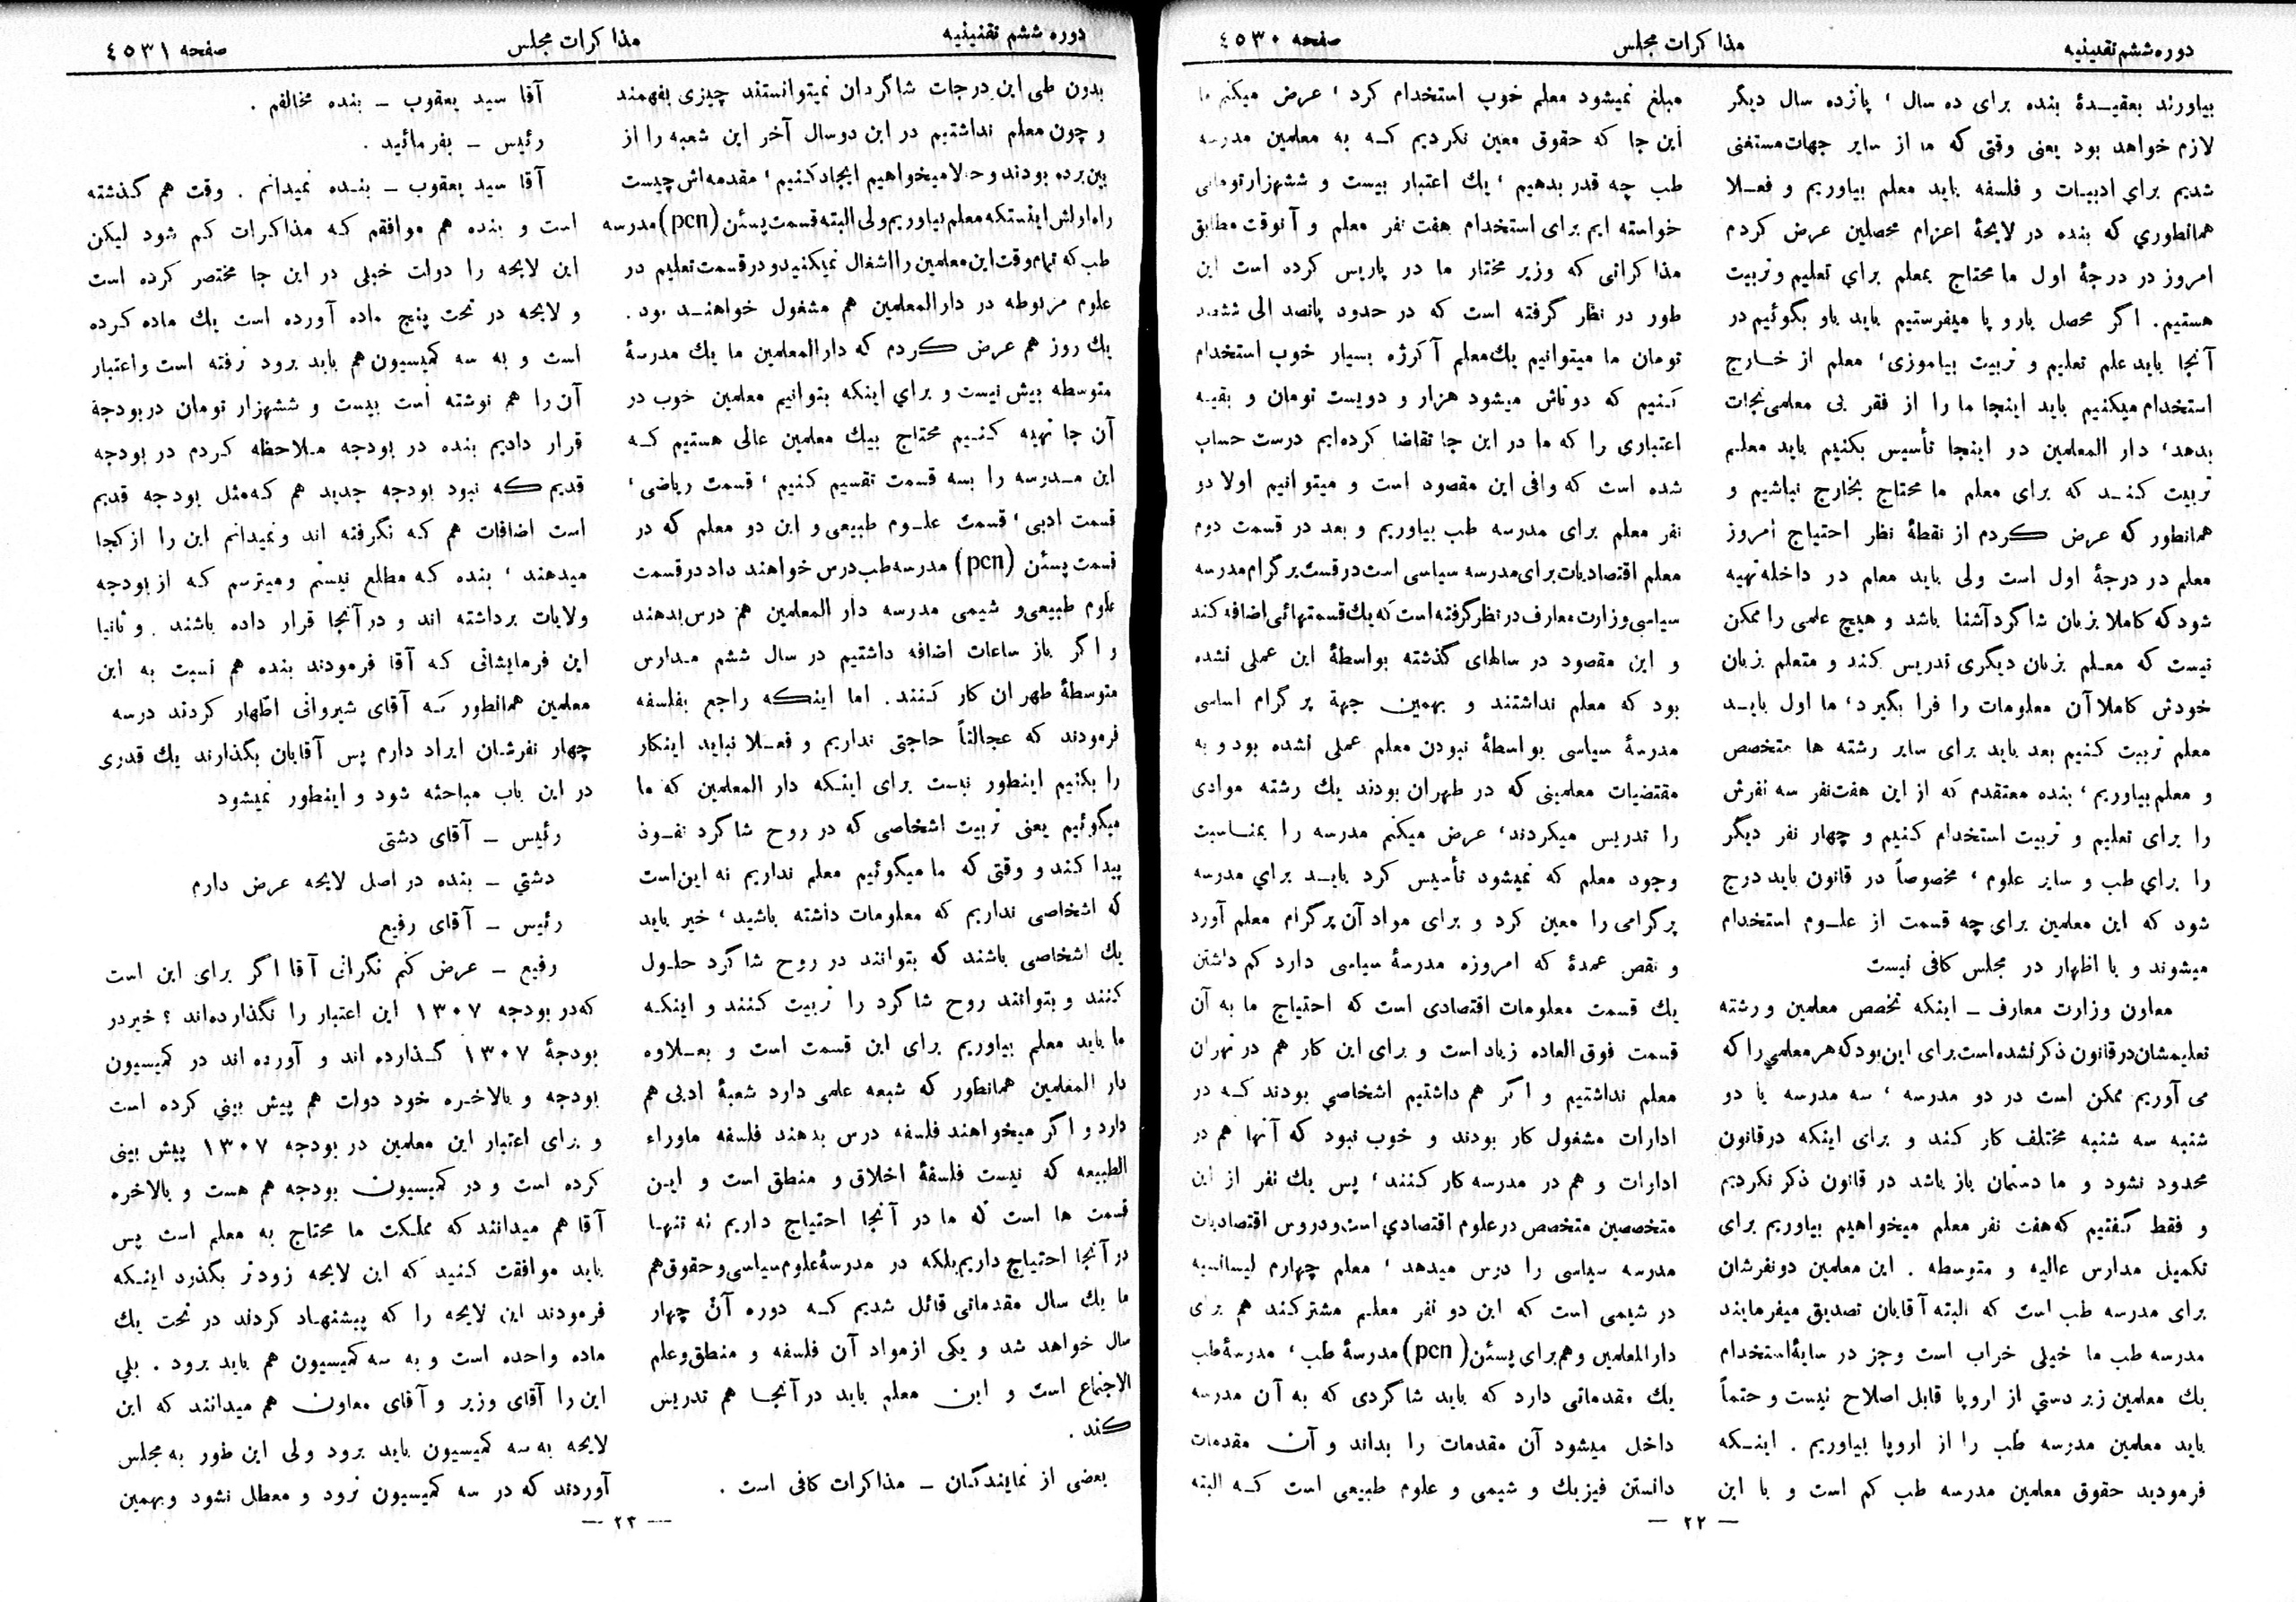 دوره ششم تقنینیه
مذاکرات مجلس
صفحه ٤٥٣٠
بیاورند بعقیدهٔ بنده برای ده سال ، پانزده سال دیگر
لازم خواهد بود یعنی وقتی که ما از سایر جهات مستغنی
شدیم برای ادبیات و فلسفه باید معلم بیاوریم و فعلا
همانطوری که بنده در لایحهٔ اعزام محصلین عرض کردم
امروز در درجهٔ اول ما محتاج بمعلم برای تعلیم و تربیت
هستیم . اگر محصل باروپا میفرستیم باید باو بگوئیم در
آنجا باید علم تعلیم و تربیت بیاموزی ، معلم از خارج
استخدام میکنیم باید اینجا ما را از فقر بی معلمی نجات
بدهد ، دار المعلمین در اینجا تأسیس بکنیم باید معلم
تربیت کند که برای معلم ما محتاج بخارج نباشیم و
همانطور که عرض کردم از نقطهٔ نظر احتیاج امروز
معلم در درجهٔ اول است ولی باید معلم در داخله تهیه
شود که کاملا بزبان شاگرد آشنا باشد و هیچ علمی را ممکن
نیست که معلم بزبان دیگری تدریس کند و متعلم بزبان
خودش کاملا آن معلومات را فرا بگیرد ، ما اول باید
معلم تربیت کنیم بعد باید برای سایر رشته ها متخصص
و معلم بیاوریم ، بنده معتقدم که از این هفت نفر سه نفرش
را برای تعلیم و تربیت استخدام کنیم و چهار نفر دیگر
را برای طب و سایر علوم ، مخصوصاً در قانون باید درج
شود که این معلمین برای چه قسمت از علوم استخدام
میشوند و با اظهار در مجلس کافی نیست
معاون وزارت معارف ـ اینکه تخصص معلمین و رشته
تعلیمشان در قانون ذکر نشده است برای این بود که هر معلمی را که
می آوریم ممکن است در دو مدرسه ، سه مدرسه یا دو
شنبه سه شنبه مختلف کار کند و برای اینکه در قانون
محدود نشود و ما دستمان باز باشد در قانون ذکر نکردیم
و فقط گفتیم که هفت نفر معلم میخواهیم بیاوریم برای
تکمیل مدارس عالیه و متوسطه . این معلمین دو نفرشان
برای مدرسه طب است که البته آقایان تصدیق میفرمایند
مدرسه طب ما خیلی خراب است و جز در سایهٔ استخدام
یك معلمین زبر دستی از اروپا قابل اصلاح نیست و حتماً
باید معلمین مدرسه طب را از اروپا بیاوریم . اینکه
فرمودید حقوق معلمین مدرسه طب کم است و با این
مبلغ نمیشود معلم خوب استخدام کرد ، عرض میکنم ما
این جا که حقوق معین نکردیم که به معلمین مدرسه
طب چه قدر بدهیم ، یك اعتبار بیست و ششهزار تومانی
خواسته ایم برای استخدام هفت نفر معلم و آنوقت مطابق
مذاکراتی که وزیر مختار ما در پاریس کرده است این
طور در نظر گرفته است که در حدود پانصد الی ششصد
تومان ما میتوانیم یك معلم آکرژه بسیار خوب استخدام
کنیم که دوتاش میشود هزار و دویست تومان و بقیه
اعتباری را که ما در این جا تقاضا کرده ایم درست حساب
شده است که وافی این مقصود است و میتوانیم اولا دو
نفر معلم برای مدرسه طب بیاوریم و بعد در قسمت دوم
معلم اقتصادیات برای مدرسه سیاسی است در قسمت برگرام مدرسه
سیاسی وزارت معارف در نظر گرفته است که یك قسمتهائی اضافه کند
و این مقصود در سالهای گذشته بواسطهٔ این عملی نشده
بود که معلم نداشتند و بهمین جهة پرگرام اساسی
مدرسهٔ سیاسی بواسطهٔ نبودن معلم عملی نشده بود و به
مقتضیات معلمینی که در طهران بودند یك رشته موادی
را تدریس میکردند ، عرض میکنم مدرسه را بمناسبت
وجود معلم که نمیشود تأسیس کرد باید برای مدرسه
پرگرامی را معین کرد و برای مواد آن پرگرام معلم آورد
و نقص عمدهٔ که امروزه مدرسهٔ سیاسی دارد کم داشتن
یك قسمت معلومات اقتصادی است که احتیاج ما به آن
قسمت فوق العاده زیاد است و برای این کار هم در تهران
معلم نداشتیم و اگر هم داشتیم اشخاصی بودند که در
ادارات مشغول کار بودند و خوب نبود که آنها هم در
ادارات و هم در مدرسه کار کنند ، پس یك نفر از این
متخصصین متخصص در علوم اقتصادی است و دروس اقتصادیات
مدرسه سیاسی را درس میدهد ، معلم چهارم لیسانسیه
در شیمی است که این دو نفر معلم مشترکند هم برای
دارالمعلمین و هم برای پسئن (pcn) مدرسهٔ طب ، مدرسهٔ طب
یك مقدماتی دارد که باید شاگردی که به آن مدرسه
داخل میشود آن مقدمات را بداند و آن مقدمات
دانستن فیزیك و شیمی و علوم طبیعی است که البته
— ٢٢ —
دوره ششم تقنینیه
مذاکرات مجلس
صفحه ٤٥٣١
بدون طی این درجات شاگردان نمیتوانستند چیزی بفهمند
و چون معلم نداشتیم در این دو سال آخر این شعبه را از
بین برده بودند و حالا میخواهیم ایجاد کنیم ، مقدمه اش چیست
راه اولش اینستکه معلم بیاوریم ولی البته قسمت پسئن (pcn) مدرسه
طب که تمام وقت این معلمین را اشغال نمیکنید و در قسمت تعلیم در
علوم مربوطه در دارالمعلمین هم مشغول خواهند بود .
یك روز هم عرض کردم که دارالمعلمین ما یك مدرسهٔ
متوسطه بیش نیست و برای اینکه بتوانیم معلمین خوب در
آن جا تهیه کنیم محتاج بیك معلمین عالی هستیم که
این مدرسه را بسه قسمت تقسیم کنیم ، قسمت ریاضی ،
قسمت ادبی ، قسمت علوم طبیعی و این دو معلم که در
قسمت پسئن (pcn) مدرسه طب درس خواهند داد در قسمت
علوم طبیعی و شیمی مدرسه دار المعلمین هم درس بدهند
و اگر باز ساعات اضافه داشتیم در سال ششم مدارس
متوسطهٔ طهران کار کنند . اما اینکه راجع بفلسفه
فرمودند که عجالتاً حاجتی نداریم و فعلا نباید اینکار
را بکنیم اینطور نیست برای اینکه دار المعلمین که ما
میگوئیم یعنی تربیت اشخاصی که در روح شاگرد نفوذ
پیدا کند و وقتی که ما میگوئیم معلم نداریم نه این است
که اشخاصی نداریم که معلومات داشته باشید ، خیر باید
یك اشخاصی باشند که بتوانند در روح شاگرد حلول
کنند و بتوانند روح شاگرد را تربیت کنند و اینکه
ما باید معلم بیاوریم برای این قسمت است و بعلاوه
دار المعلمین همانطور که شبعه علمی دارد شعبهٔ ادبی هم
دارد و اگر میخواهند فلسفه درس بدهند فلسفه ماوراء
الطبیعه که نیست فلسفهٔ اخلاق و منطق است و این
قسمت ها است که ما در آنجا احتیاج داریم نه تنها
در آنجا احتیاج داریم بلکه در مدرسهٔ علوم سیاسی و حقوق هم
ما یك سال مقدماتی قائل شدیم که دوره آن چهار
سال خواهد شد و یکی از مواد آن فلسفه و منطق و علم
الاجتماع است و این معلم باید در آنجا هم تدریس
کند .
بعضی از نمایندگان ـ مذاکرات کافی است .
آقا سید یعقوب ـ بنده مخالفم .
رئیس ـ بفرمائید .
آقا سید یعقوب ـ بنده نمیدانم . وقت هم گذشته
است و بنده هم موافقم که مذاکرات کم شود لیکن
این لایحه را دولت خیلی در این جا مختصر کرده است
و لایحه در تحت پنج ماده آورده است یك ماده کرده
است و به سه کمیسیون هم باید برود نرفته است و اعتبار
آن را هم نوشته است بیست و ششهزار تومان در بودجهٔ
قرار دادیم بنده در بودجه ملاحظه کردم در بودجه
قدیم که نبود بودجه جدید هم که مثل بودجه قدیم
است اضافات هم که نگرفته اند و نمیدانم این را از کجا
میدهند ، بنده که مطلع نیستم و میترسم که از بودجه
ولایات برداشته اند و در آنجا قرار داده باشند . و ثانیا
این فرمایشاتی که آقا فرمودند بنده هم نسبت به این
معلمین همانطور که آقای شیروانی اظهار کردند در سه
چهار نفرشان ایراد دارم پس آقایان بگذارند یك قدری
در این باب مباحثه شود و اینطور نمیشود
رئیس ـ آقای دشتی
دشتی ـ بنده در اصل لایحه عرض دارم
رئیس ـ آقای رفیع
رفیع ـ عرض کنم نگرانی آقا اگر برای این است
که در بودجه ١٣٠٧ این اعتبار را نگذارده اند ؟ خیر در
بودجهٔ ١٣٠٧ گذارده اند و آورده اند در کمیسیون
بودجه و بالاخره خود دولت هم پیش بینی کرده است
و برای اعتبار این معلمین در بودجه ١٣٠٧ پیش بینی
کرده است و در کمیسیون بودجه هم هست و بالاخره
آقا هم میدانند که مملکت ما محتاج به معلم است پس
باید موافقت کنید که این لایحه زودتر بگذرد اینکه
فرمودند این لایحه را که پیشنهاد کردند در تحت یك
ماده واحده است و به سه کمیسیون هم باید برود . بلی
این را آقای وزیر و آقای معاون هم میدانند که این
لایحه به سه کمیسیون باید برود ولی این طور به مجلس
آوردند که در سه کمیسیون نرود و معطل نشود و بهمین
— ٢٣ —